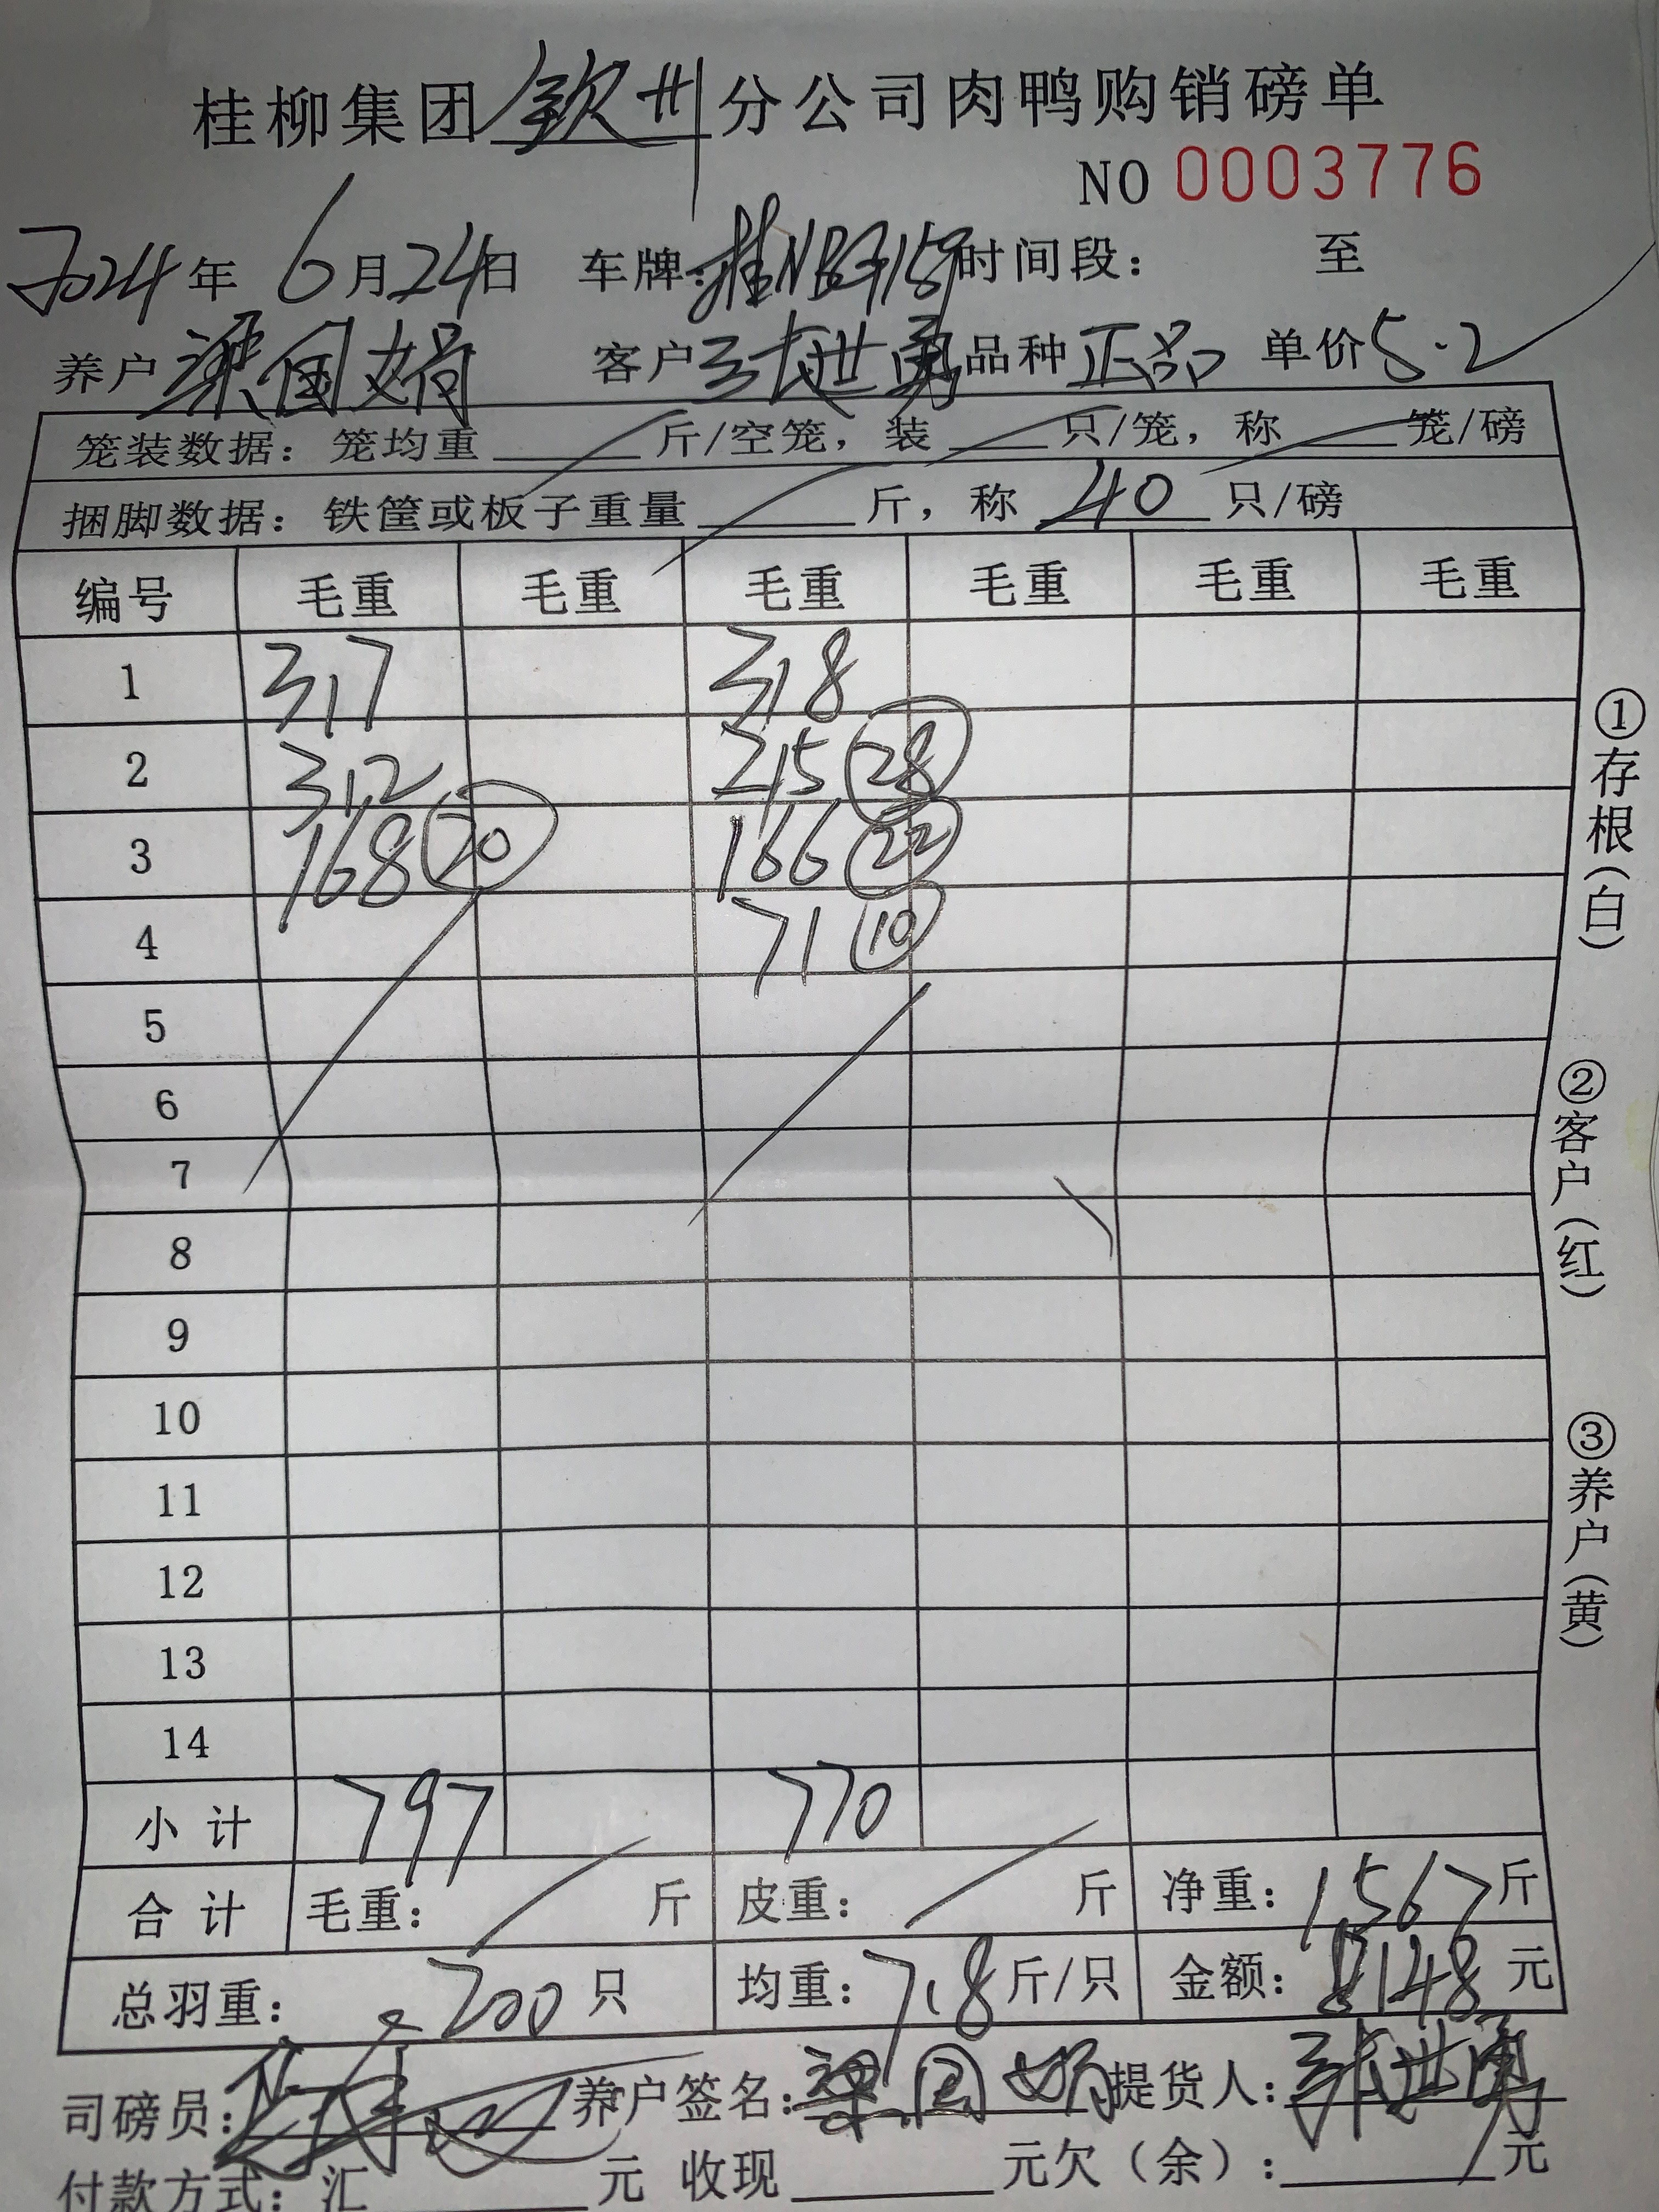 桂柳集团钦州分公司肉鸭购销磅单
NO 0003776
2024年 6月24日 车牌: 时间段: 至
养户 梁国娟 客户 张世勇 品种 正品 单价 5.2
笼装数据: 笼均重 斤/空笼, 装 只/笼, 称 笼/磅
捆脚数据: 铁筐或板子重量 斤, 称 40 只/磅
编号 毛重 毛重 毛重 毛重 毛重 毛重
1 317 318
2 312 215 28
3 168 20 166 22
4 71 10
5
6
7
8
9
10
11
12
13
14
小计 797 770
合计 毛重: 斤 皮重: 斤 净重: 1567 斤
总羽重: 200 只 均重: 7.8 斤/只 金额: 8148 元
司磅员: 养户签名: 梁国娟 提货人: 张世勇
付款方式: 汇 元 收现 元欠(余): 元
①存根(白)
②客户(红)
③养户(黄)